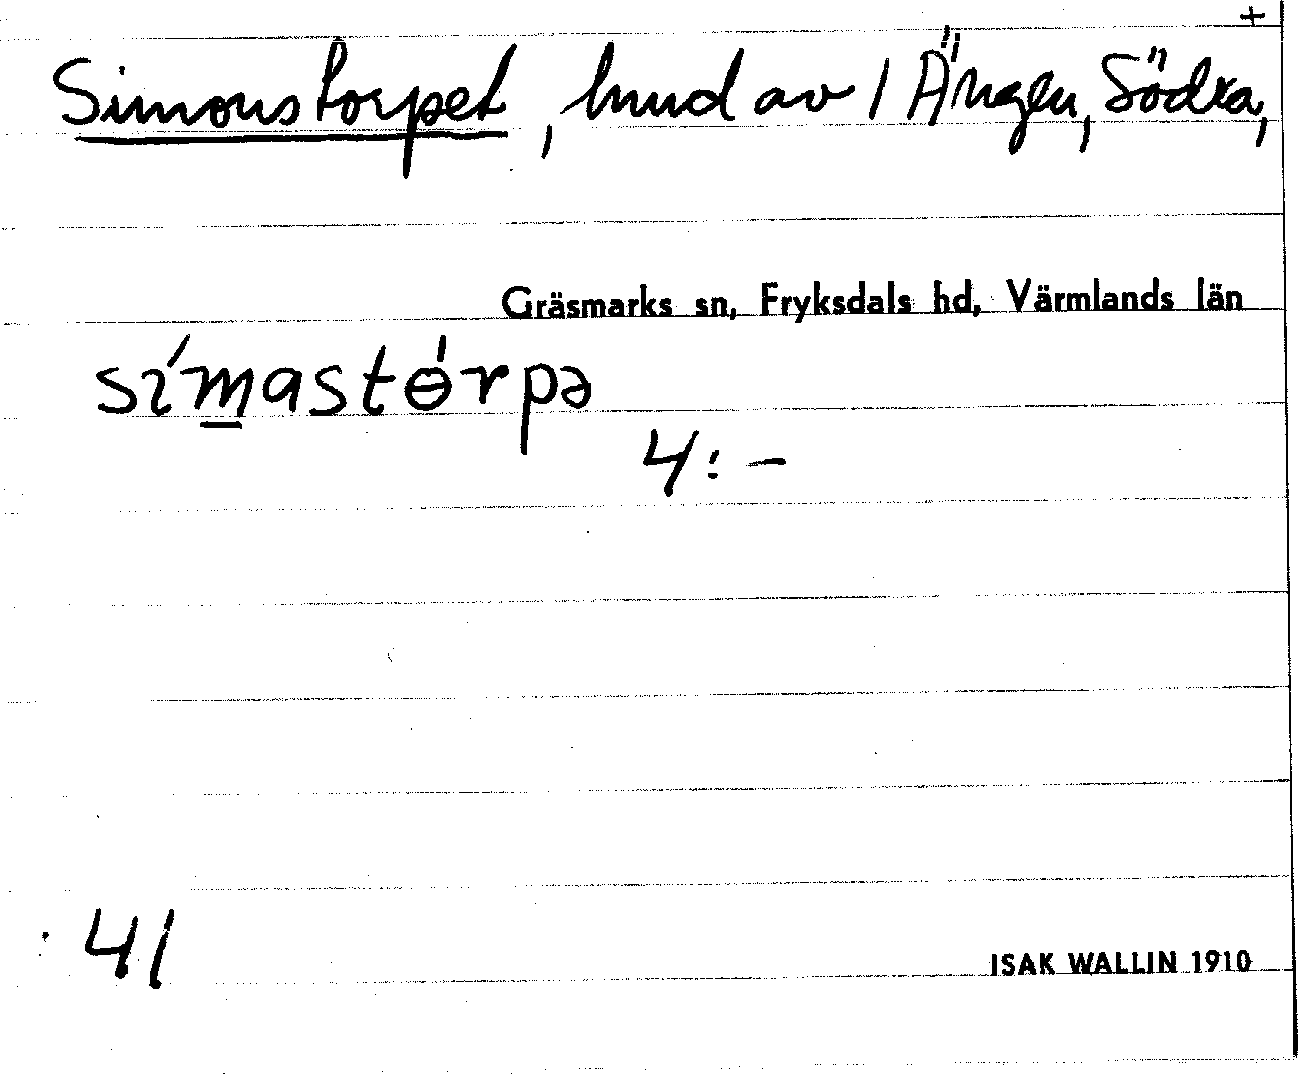 +
Simonstorpet, hmd av 1 Ängen, Södra,
Gräsmarks sn, Fryksdals hd, Värmlands län
sím̲astɵ́rpə
4:-
41
ISAK WALLIN 1910